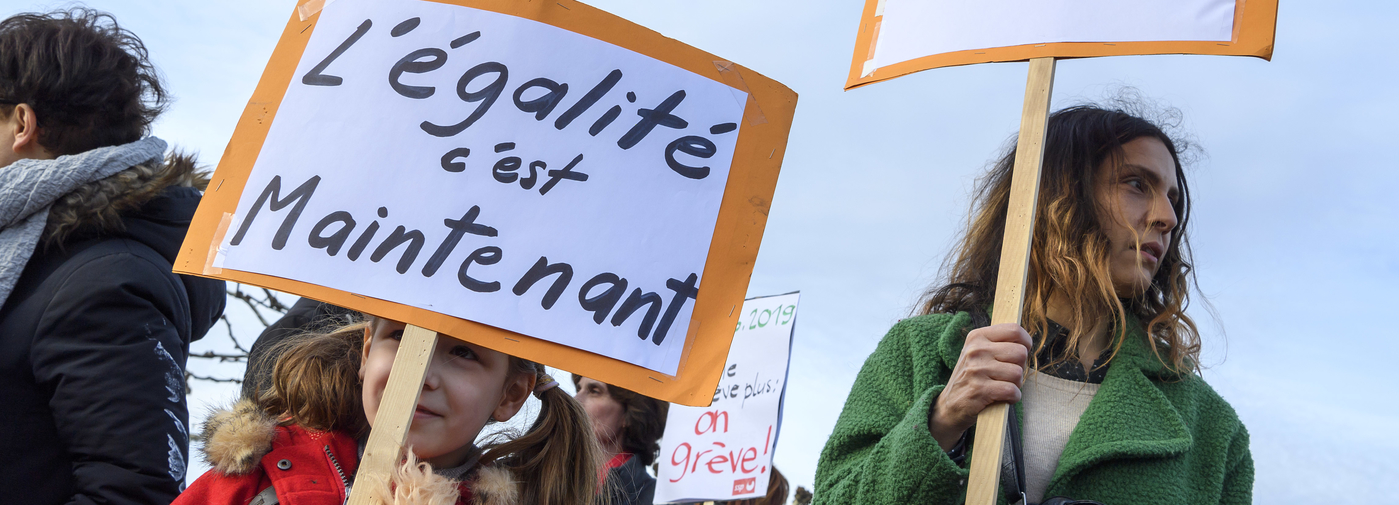 L'égalité
c'est
Maintenant
2019
plus:
on
grève!